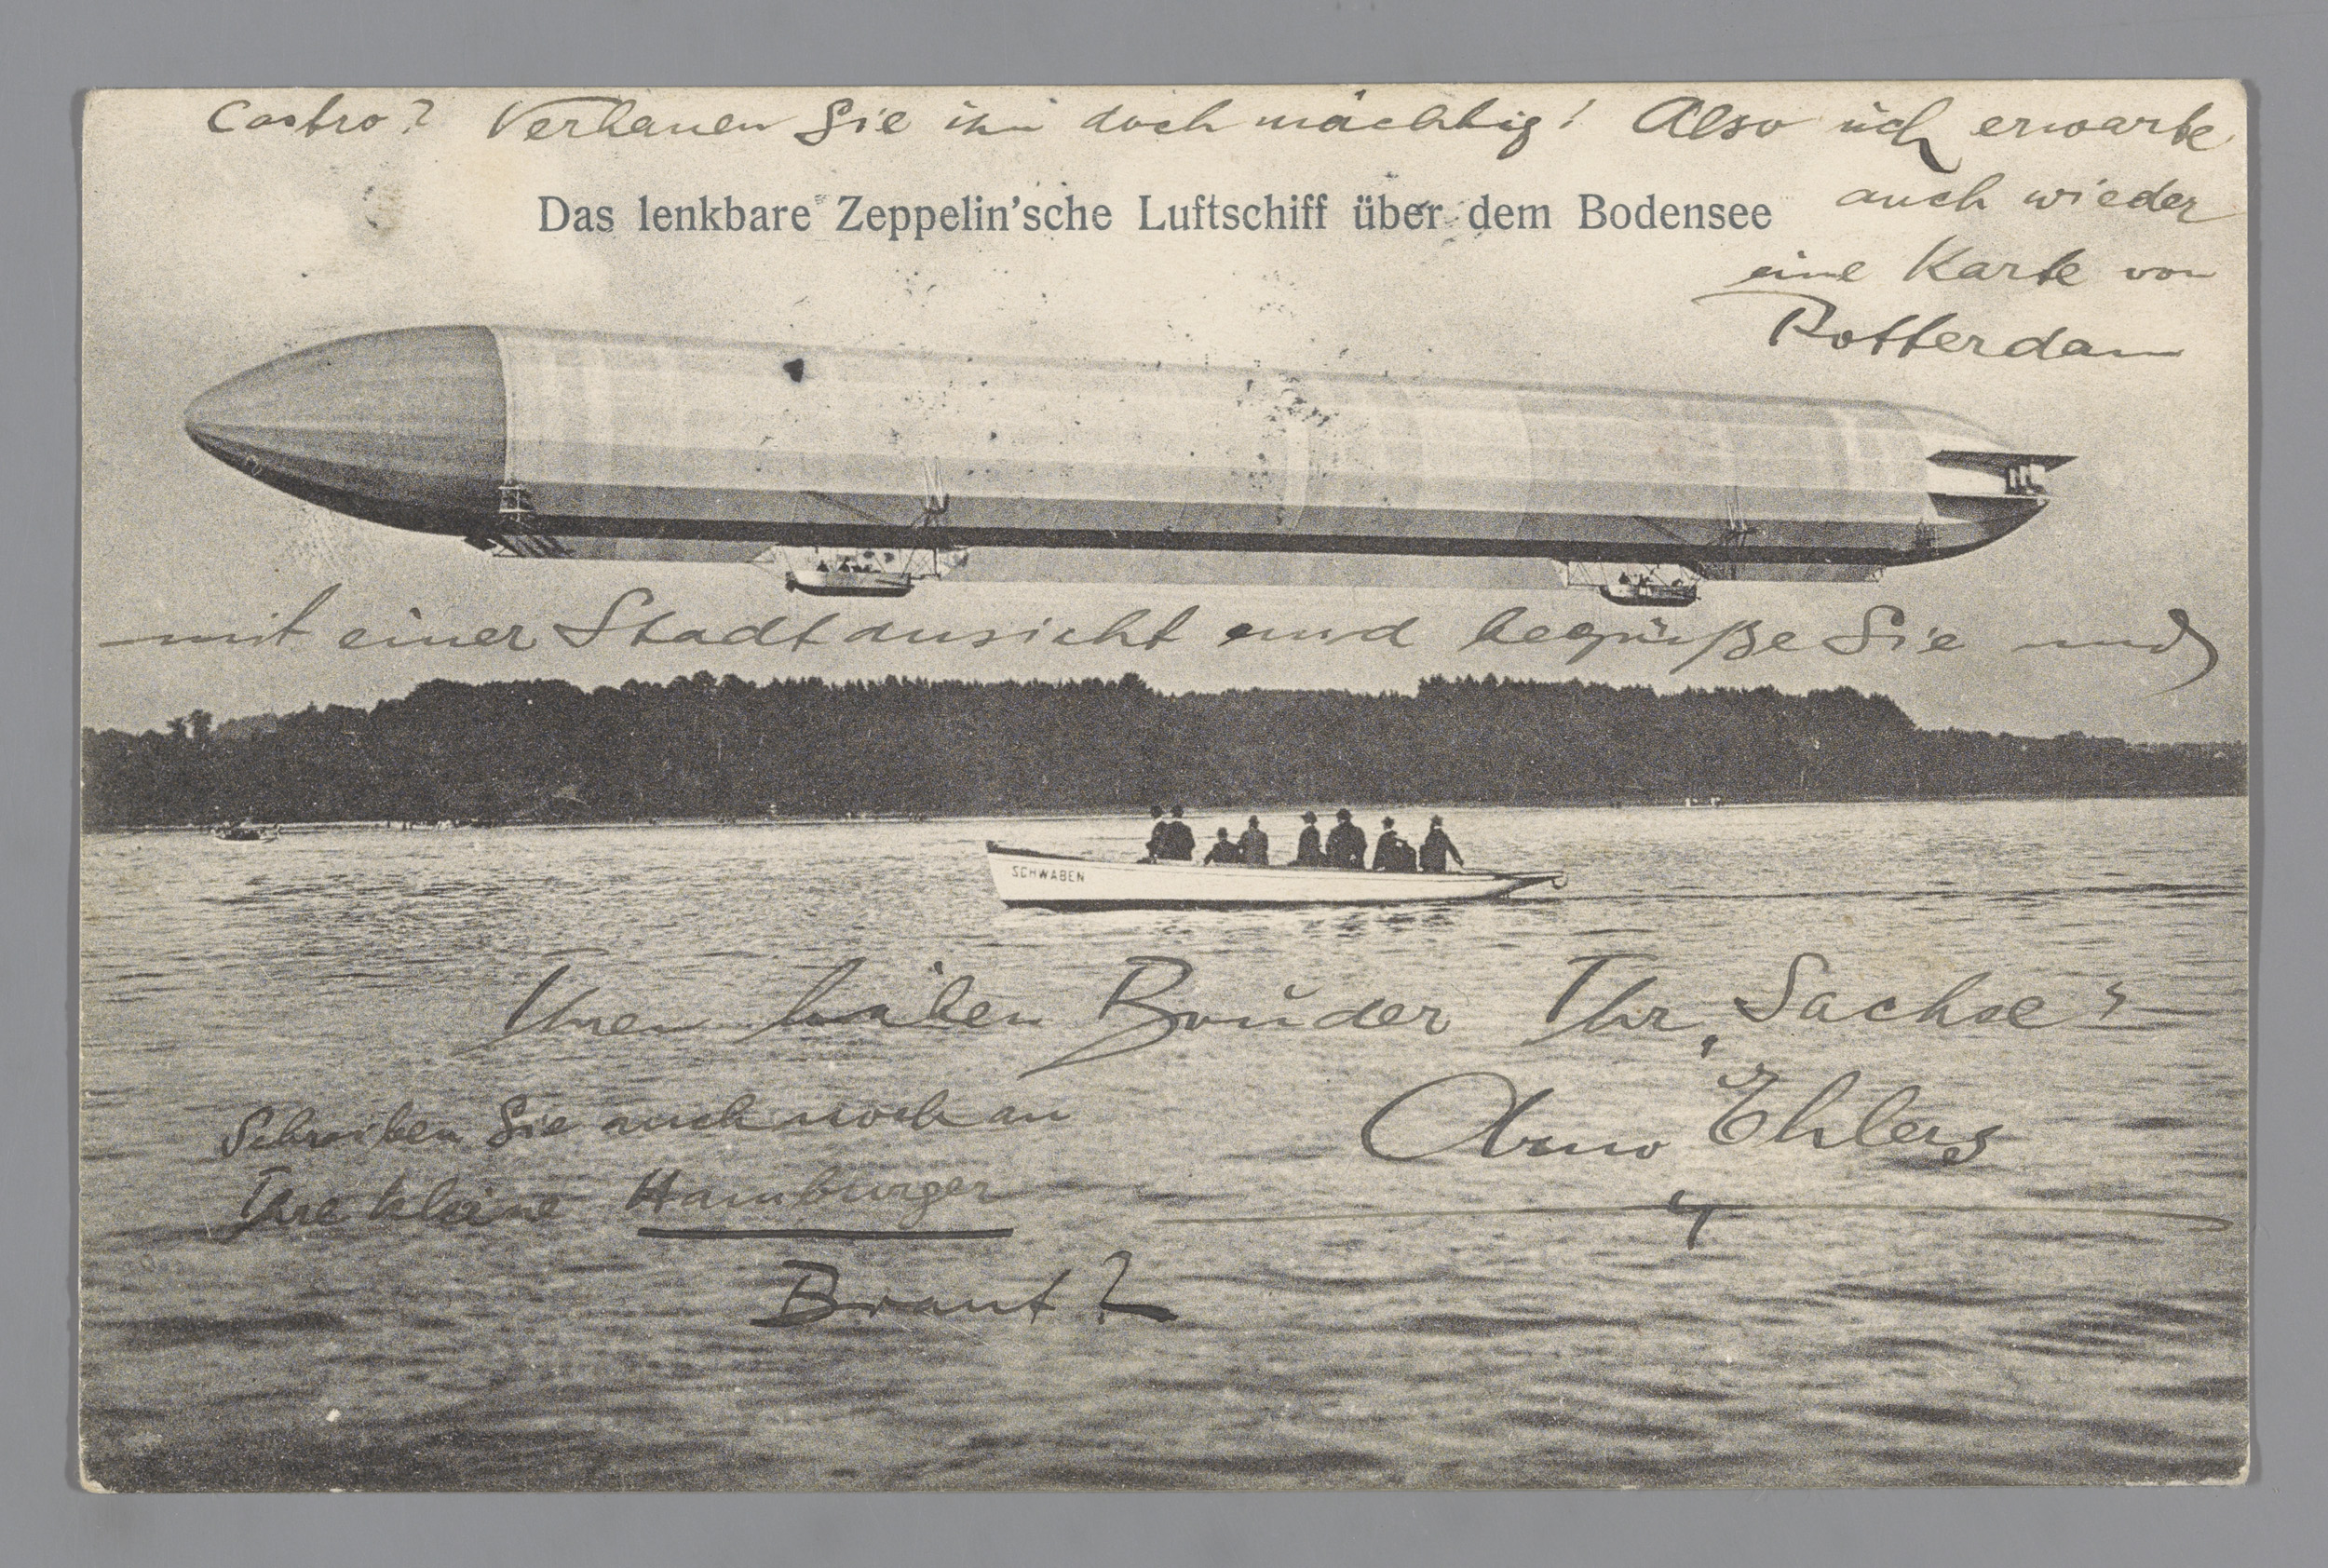 Castro? Verhauen Sie ihn doch mächtig! Also ich erwarte
Das lenkbare Zeppelin'sche Luftschiff über dem Bodensee
auch wieder
eine Karte von
Rotterdam
mit einer Stadtansicht und begrüße Sie und
SCHWABEN
Ihren lieben Bruder Ihr „Sachse“
Arno Ehlers
Schreiben Sie auch noch an
Ihre kleine Hamburger
Braut?